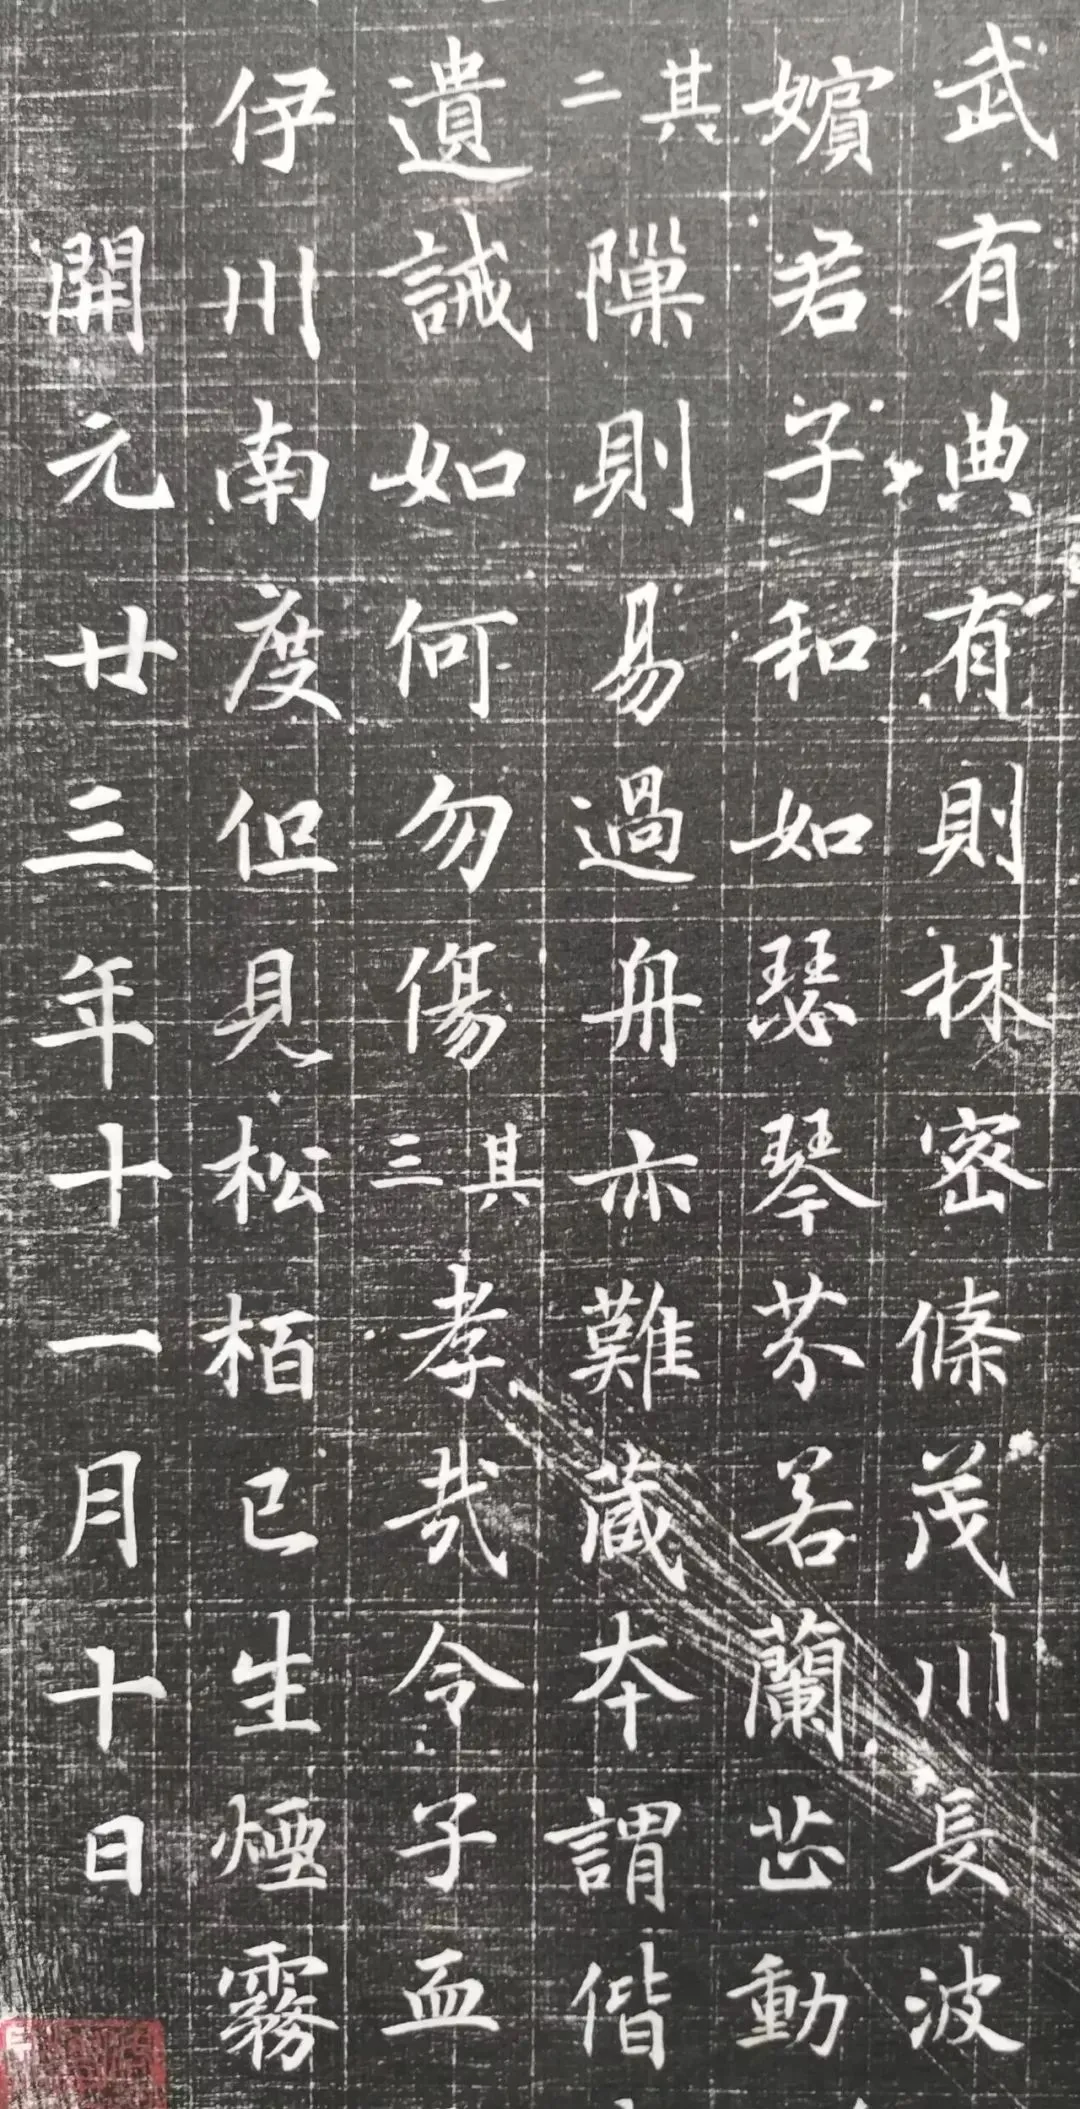 武有典有則林密條茂川長波
嬪君子和如瑟琴芬若蘭芷動
其二隟則易過舟亦難藏本謂偕
遺誡如何勿傷其三孝哉令子血
伊川南度但見松栢已生煙霧
開元廿三年十一月十日